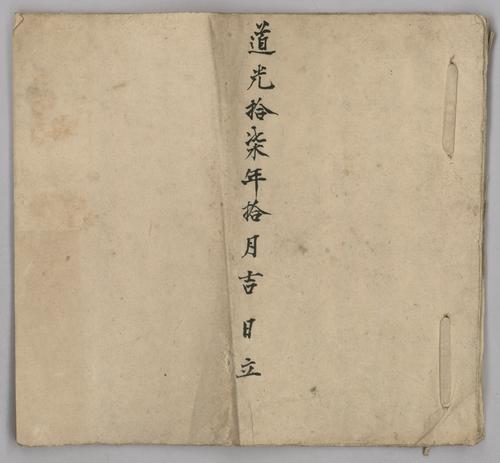 道光拾柒年拾月吉日立